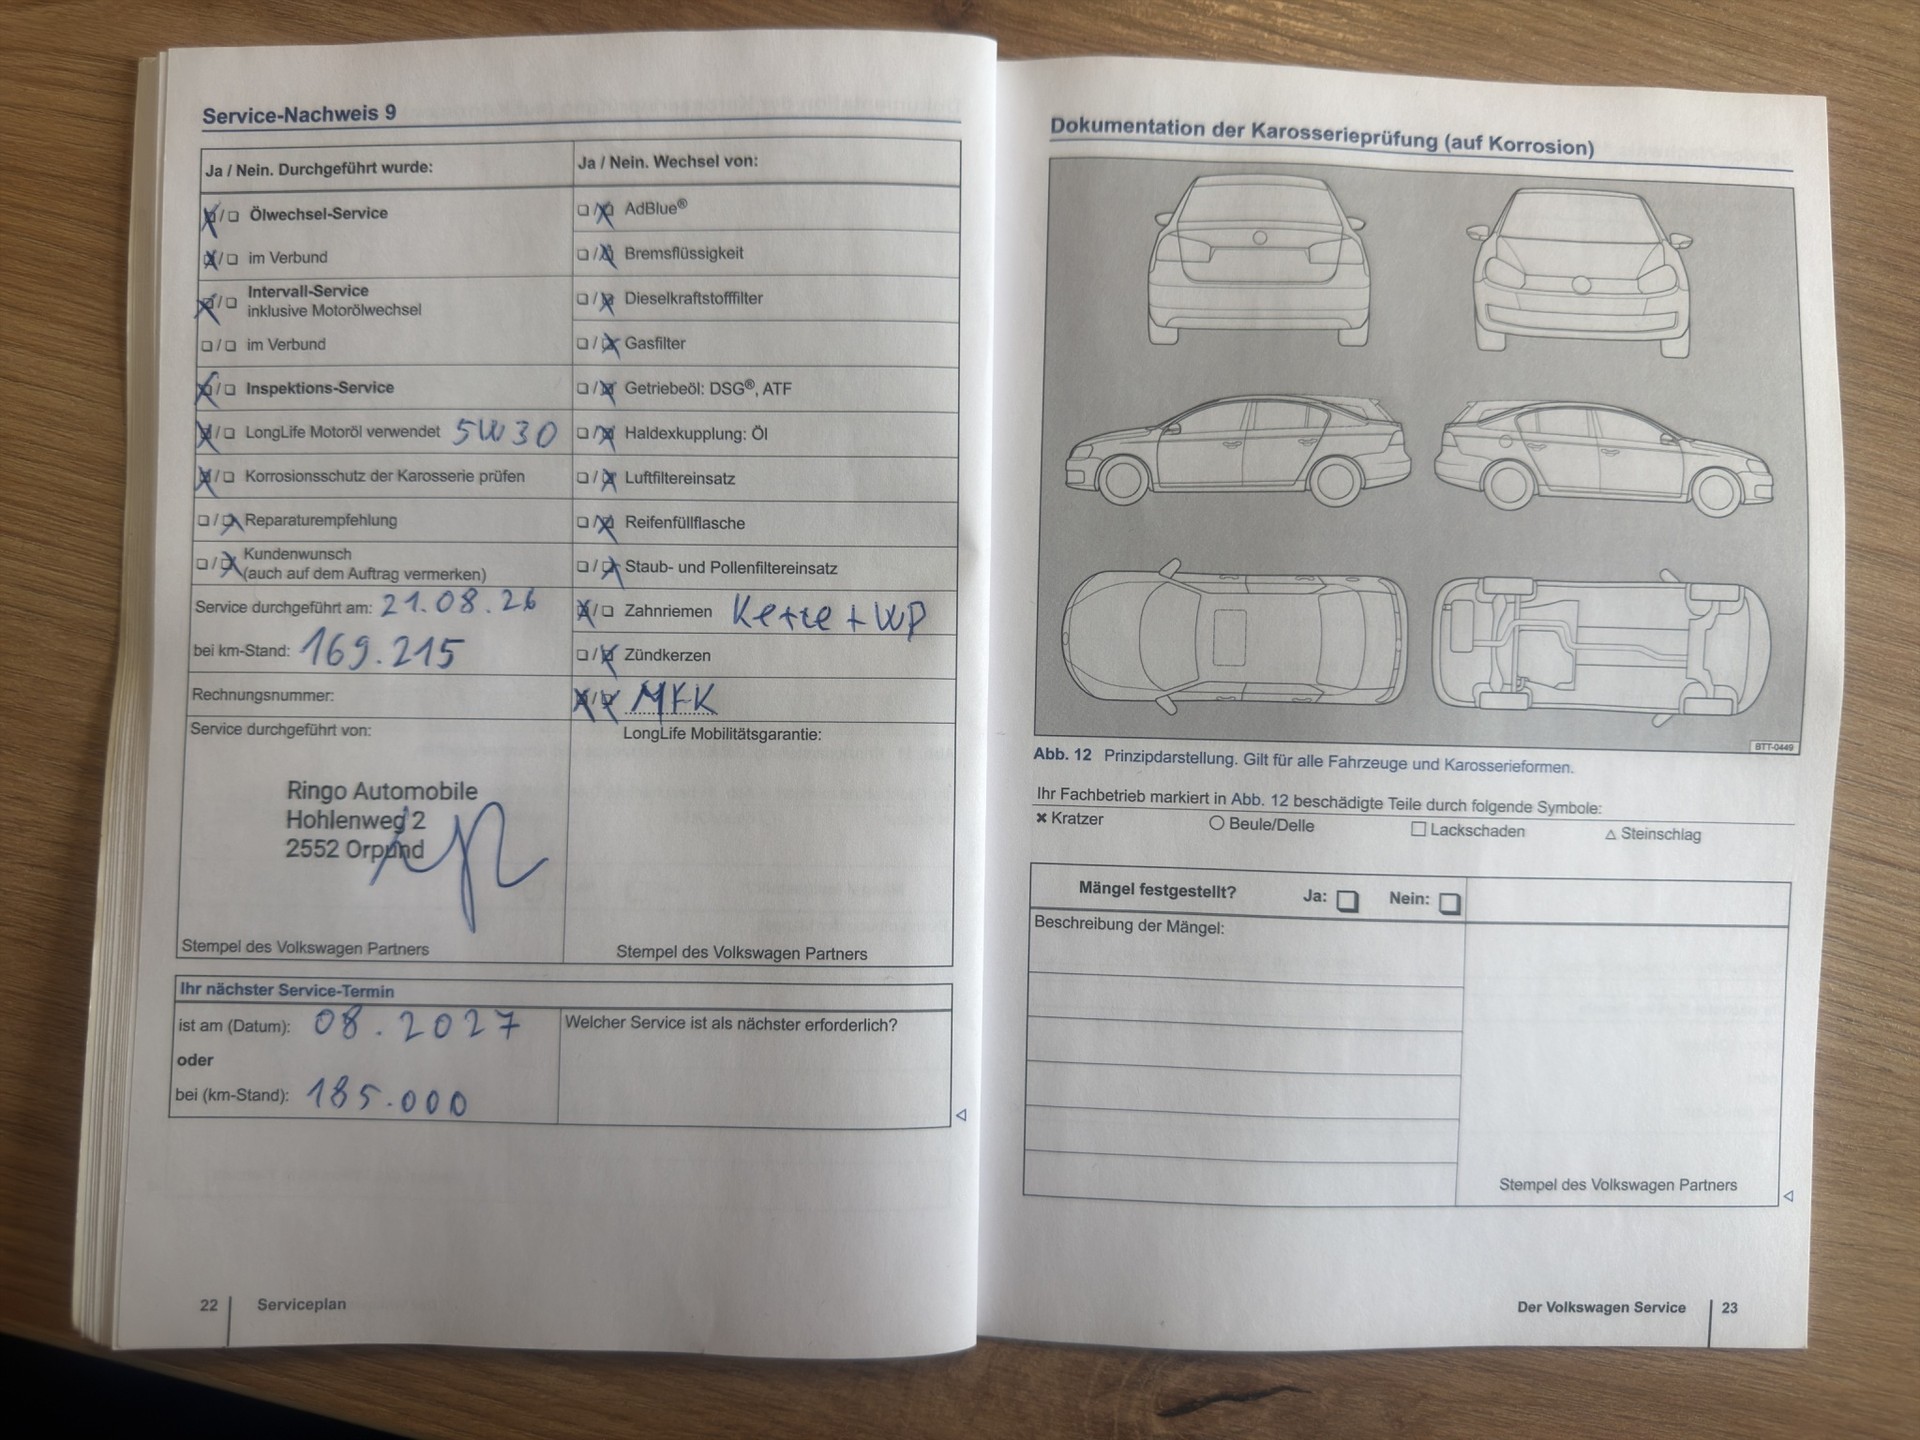 Service-Nachweis 9
Ja / Nein. Durchgeführt wurde:
Ölwechsel-Service
im Verbund
Intervall-Service
inklusive Motorölwechsel
im Verbund
Inspektions-Service
LongLife Motoröl verwendet 5W30
Korrosionsschutz der Karosserie prüfen
Reparaturempfehlung
Kundenwunsch
(auch auf dem Auftrag vermerken)
Service durchgeführt am: 21.08.26
bei km-Stand: 169.215
Rechnungsnummer:
Service durchgeführt von:
Ringo Automobile
Hohlenweg 2
2552 Orpund
Stempel des Volkswagen Partners
Ja / Nein. Wechsel von:
AdBlue®
Bremsflüssigkeit
Dieselkraftstofffilter
Gasfilter
Getriebeöl: DSG®, ATF
Haldexkupplung: Öl
Luftfiltereinsatz
Reifenfüllflasche
Staub- und Pollenfiltereinsatz
Zahnriemen Kette + WP
Zündkerzen
MFK
LongLife Mobilitätsgarantie:
Stempel des Volkswagen Partners
Ihr nächster Service-Termin
ist am (Datum): 08.2027
oder
bei (km-Stand): 185.000
Welcher Service ist als nächster erforderlich?
22 Serviceplan
Dokumentation der Karosserieprüfung (auf Korrosion)
BTT-0449
Abb. 12 Prinzipdarstellung. Gilt für alle Fahrzeuge und Karosserieformen.
Ihr Fachbetrieb markiert in Abb. 12 beschädigte Teile durch folgende Symbole:
× Kratzer ○ Beule/Delle □ Lackschaden △ Steinschlag
Mängel festgestellt? Ja: Nein:
Beschreibung der Mängel:
Stempel des Volkswagen Partners
Der Volkswagen Service 23